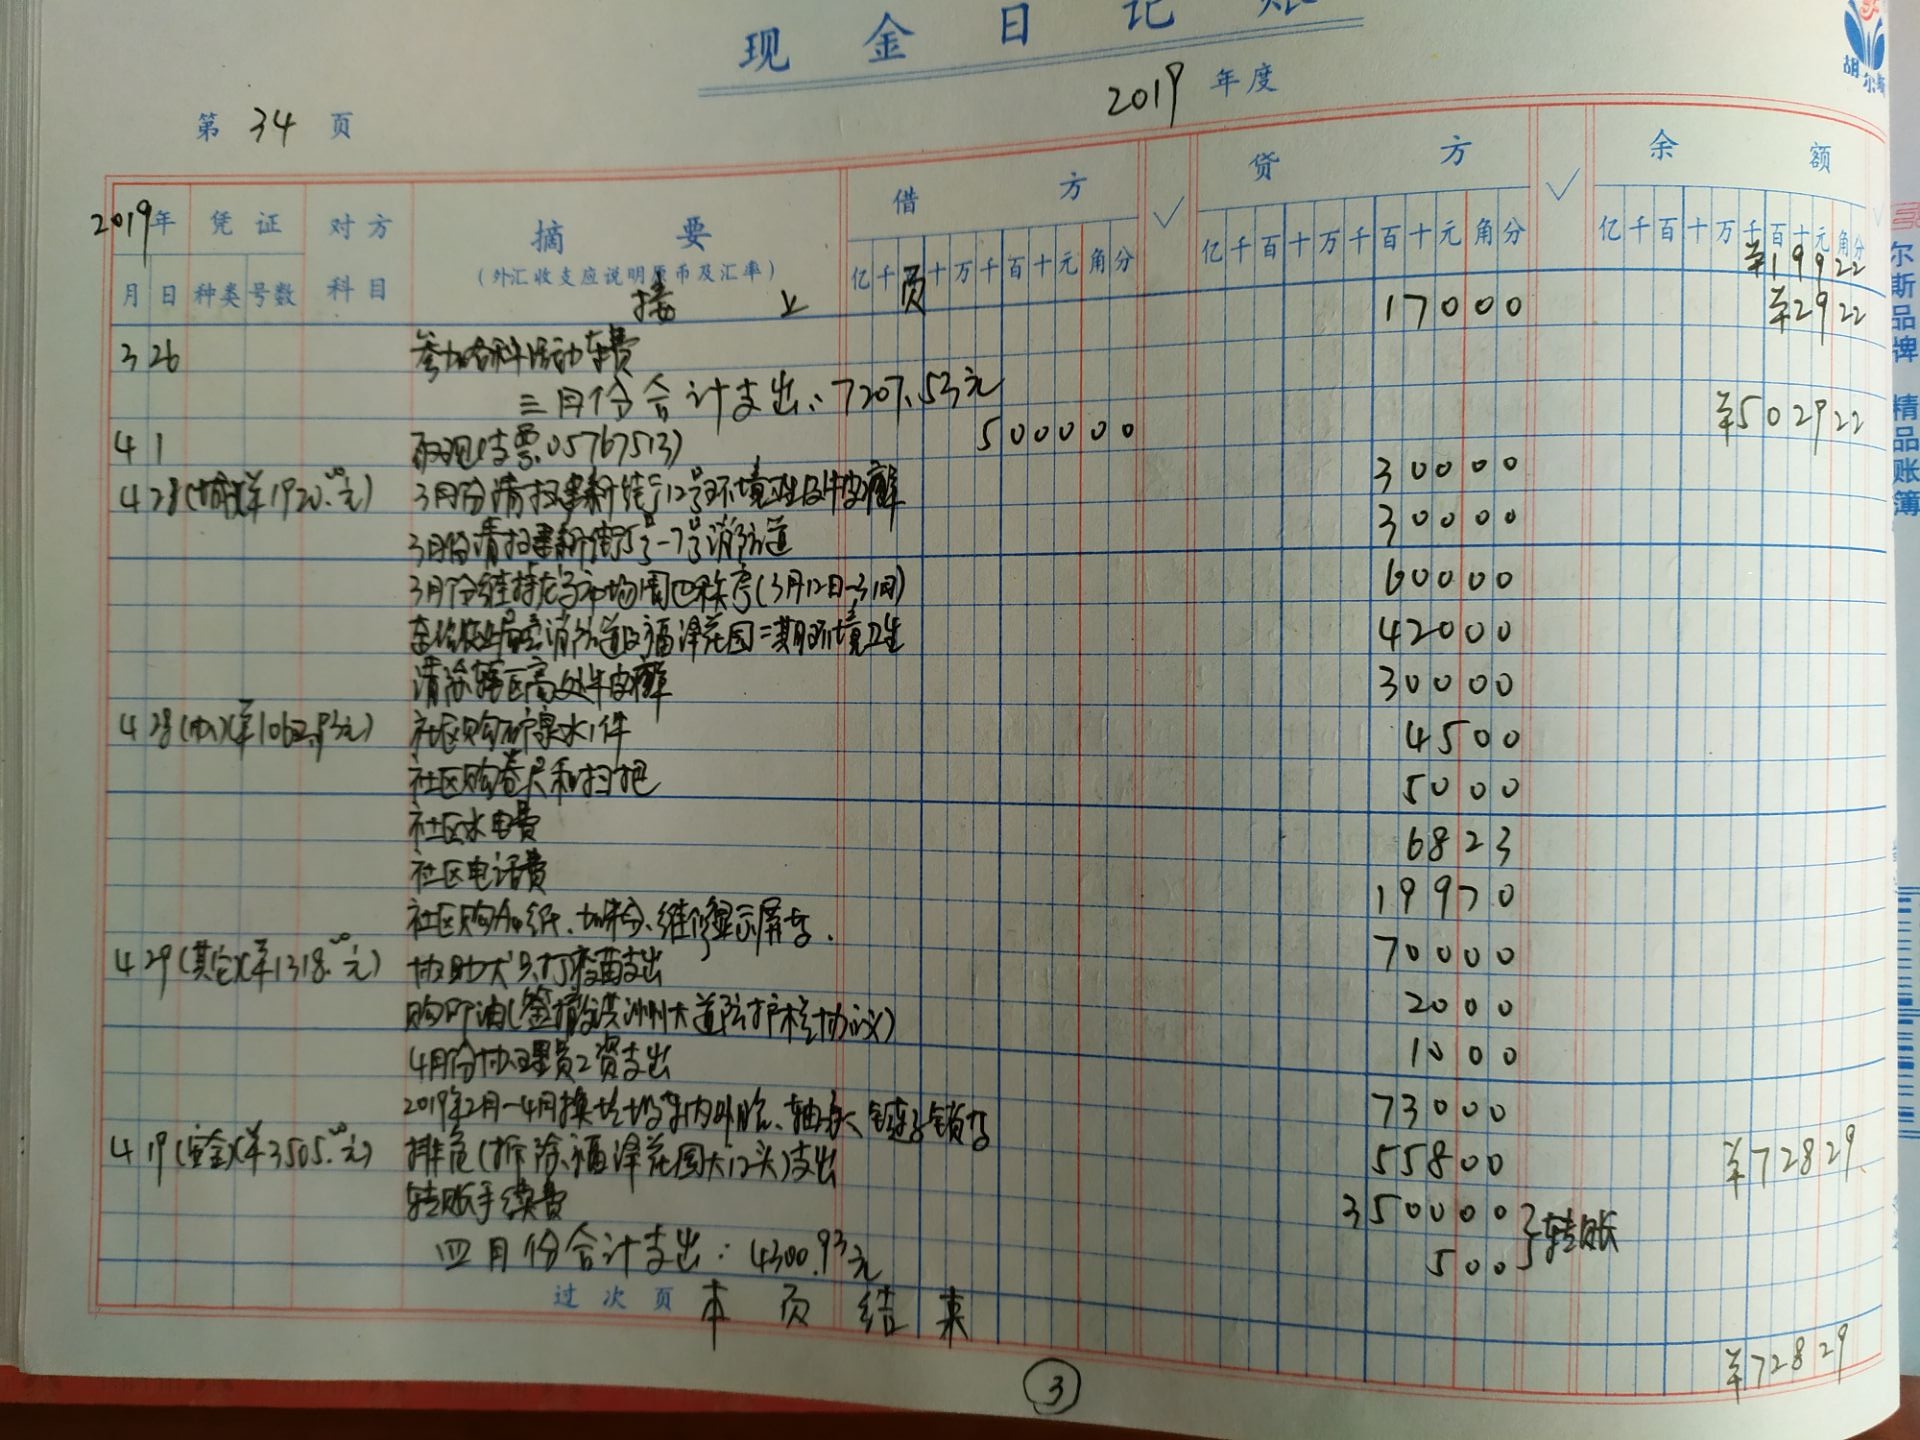 现金日记账
2019 年度
第 34 页
胡尔斯
2019年 凭证 对方 摘要 借方 贷方 余额
(外汇收支应说明原币及汇率)
月 日 种类 号数 科目 亿千百十万千百十元角分 亿千百十万千百十元角分 亿千百十万千百十元角分
接上页 ¥19922
3 26 参加各科活动车费 17000 ¥2922
三月份合计支出:7207.53元
4 1 取现(支票.05767513) 500000 ¥502922
4 28 (城¥1920.00元) 3月份清扫建新街12号环境卫生及牛皮癣 30000
3月份清扫建新街5号-7号消防道 30000
3月份维持 市场周四秩序(3月12日-31日) 60000
消防道及福泽花园二期环境卫生 42000
清除辖区高处牛皮癣 30000
4 28 (办)(¥1062.93元) 社区购矿泉水1件 4500
社区购卷尺和扫把 5000
社区水电费 6823
社区电话费 19970
社区购A4纸、加粉、维修显示屏等. 70000
4 29 (其它)(¥1318.00元) 协助犬只打疫苗支出 2000
购印油( 洪洲大道 护栏协议) 1000
4月份协理员工资支出 73000
2019年2月-4月换垃圾车内外胎、轴承、链子锁等 55800 ¥72829
4 19 (安全)(¥3505.00元) 排危(拆除福泽花园大门头)支出 350000
转账手续费 500 }转账
四月份合计支出:4300.93元
过次页 本页结束 ¥72829
3
尔斯品牌 精品账簿